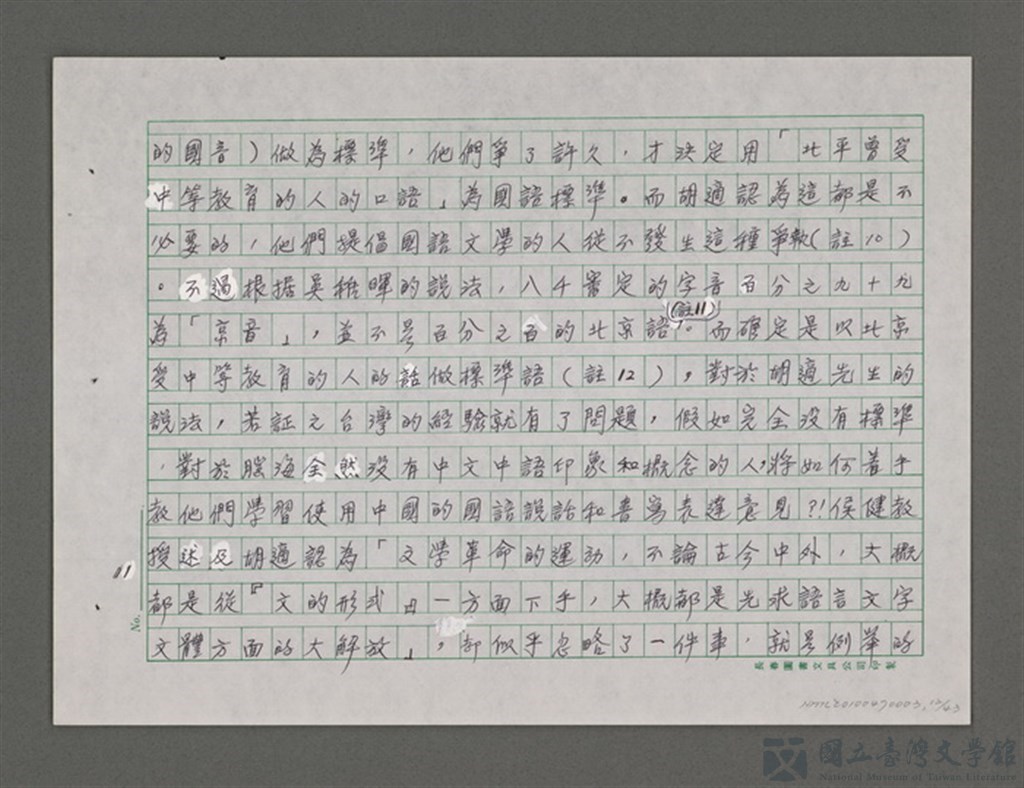 的國音）做為標準，他們爭了許久，才決定用「北平曾受
中等教育的人的口語」為國語標準。而胡適認為這都是不
必要的，他們提倡國語文學的人從不發生這種爭執（註10）
。不過根据吳稚暉的說法，八千審定的字音百分之九十九
為「京音」，並不是百分之百的北京語（註11）。而確定是以北京
受中等教育的人的話做標準語（註12），對於胡適先生的
說法，若証之台灣的經驗就有了問題，假如完全沒有標準
，對於腦海全然沒有中文中語印象和概念的人，將如何着手
教他們學習使用中國的國語說話和書寫表達意見？！侯健教
授述及胡適認為「文學革命的運動，不論古今中外，大概
都是從『文的形式』一方面下手，大概都是先求語言文字
文體方面的大解放」，卻似乎忽略了一件事，就是例舉的
11
No.
長春圖書文具公司印製
NMTL20100490003, 13/43
國立臺灣文學館
National Museum of Taiwan Literature